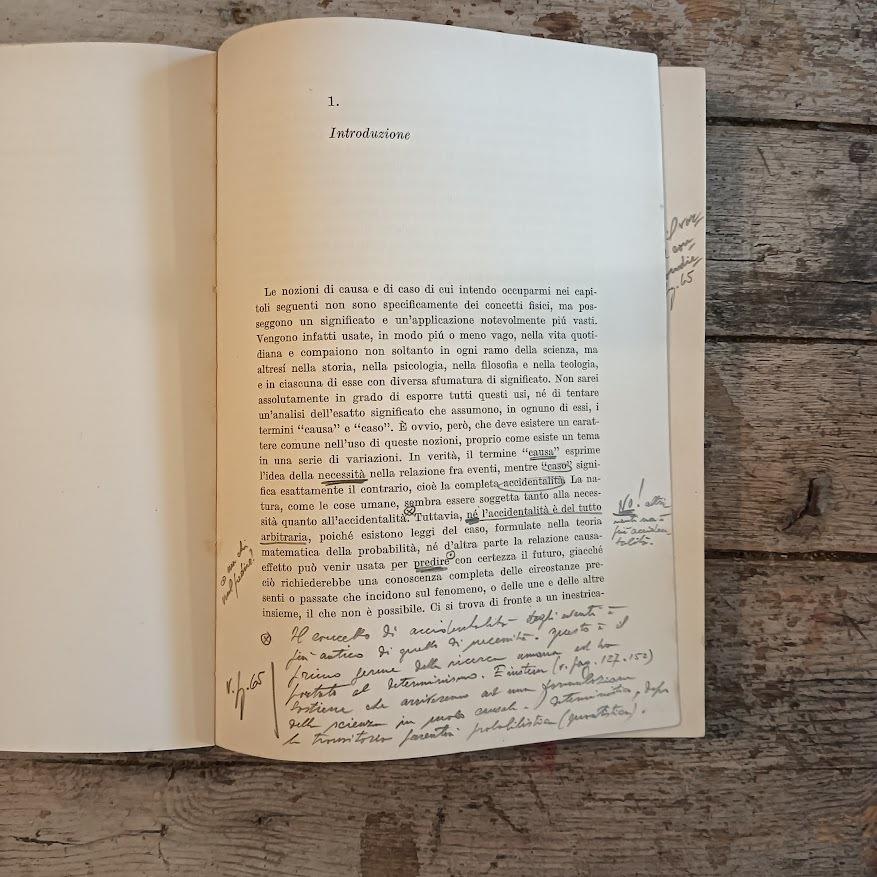 1.
Introduzione
Le nozioni di causa e di caso di cui intendo occuparmi nei capi-
toli seguenti non sono specificamente dei concetti fisici, ma pos-
seggono un significato e un'applicazione notevolmente piú vasti.
Vengono infatti usate, in modo piú o meno vago, nella vita quoti-
diana e compaiono non soltanto in ogni ramo della scienza, ma
altresí nella storia, nella psicologia, nella filosofia e nella teologia,
e in ciascuna di esse con diversa sfumatura di significato. Non sarei
assolutamente in grado di esporre tutti questi usi, né di tentare
un'analisi dell'esatto significato che assumono, in ognuno di essi, i
termini “causa” e “caso”. È ovvio, però, che deve esistere un carat-
tere comune nell'uso di queste nozioni, proprio come esiste un tema
in una serie di variazioni. In verità, il termine “causa” esprime
l'idea della necessità nella relazione fra eventi, mentre “caso” signi-
fica esattamente il contrario, cioè la completa accidentalità. La na-
tura, come le cose umane, sembra essere soggetta tanto alla neces-
sità quanto all'accidentalità. Tuttavia, né l'accidentalità è del tutto
arbitraria, poiché esistono leggi del caso, formulate nella teoria
matematica della probabilità, né d'altra parte la relazione causa-
effetto può venir usata per predire con certezza il futuro, giacché
ciò richiederebbe una conoscenza completa delle circostanze pre-
senti o passate che incidono sul fenomeno, o delle une e delle altre
insieme, il che non è possibile. Ci si trova di fronte a un inestrica-
NO! altri
menti non è
più acciden
talità.
Il concetto di accidentalità degli eventi è
più antico di quello di necessità. Questo è il
primo fermo della ricerca umana ed ha
portato al determinismo. Einstein (v. pag. 127.152)
sostiene che arriveremo ad una formulazione
della scienza in modo causale. deterministica, dopo
la transitoria parentesi probabilistica
v. p. 65
p. 65